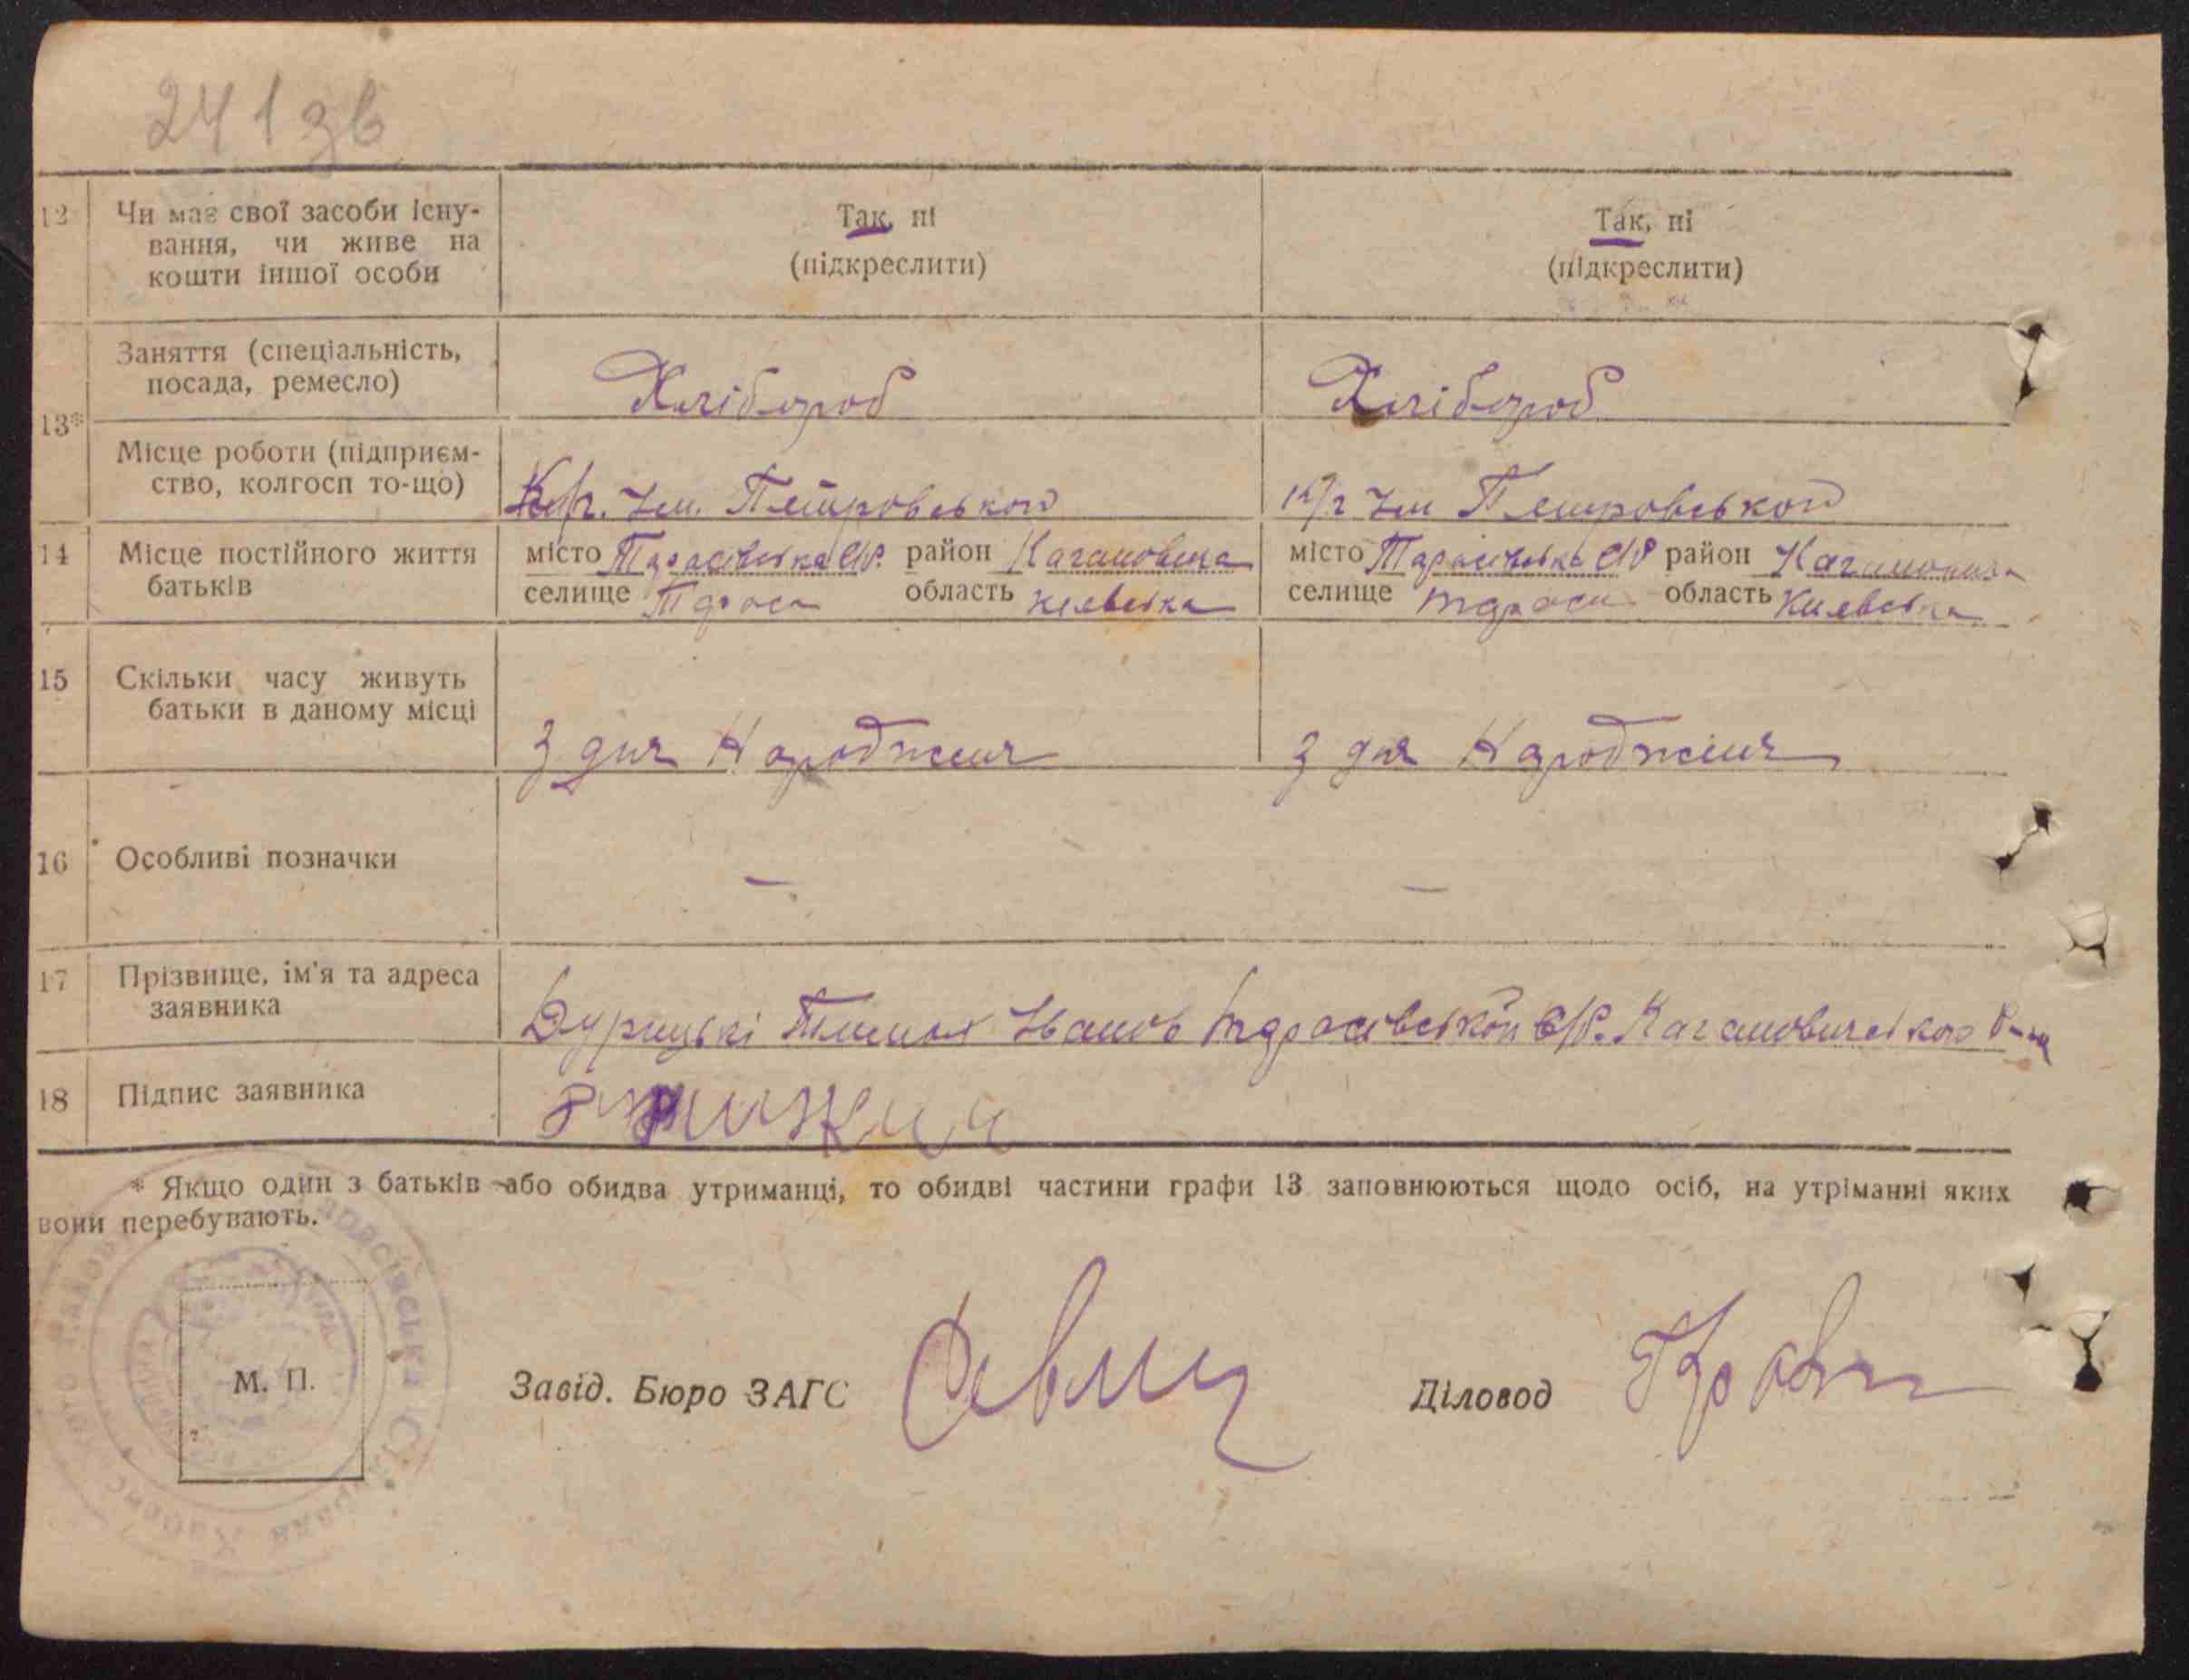 241 зв
12 Чи має свої засоби існу-
вання, чи живе на
кошти іншої особи
Так, ні
(підкреслити)
Так, ні
(підкреслити)
13*
Заняття (спеціальність,
посада, ремесло)
Хлібороб
Хлібороб
Місце роботи (підприєм-
ство, колгосп то-що)
К/г. Ім. Петровського
к/г Ім Петровського
14 Місце постійного життя
батьків
місто Тарасівська С/Р. район Кагановича
селище Тараси область київська
місто Тарасівська С/Р район Кагановича
селище тараси область Київська
15 Скільки часу живуть
батьки в даному місці
З дня Народження
З дня Народження
16 Особливі позначки
—
—
17 Прізвище, ім'я та адреса
заявника
Іванов Тарасівської С/Р. Кагановичського Р-на
18 Підпис заявника
* Якщо один з батьків або обидва утриманці, то обидві частини графи 13 заповнюються щодо осіб, на утріманні яких
вони перебувають.
М. П.
Завід. Бюро ЗАГС
Діловод